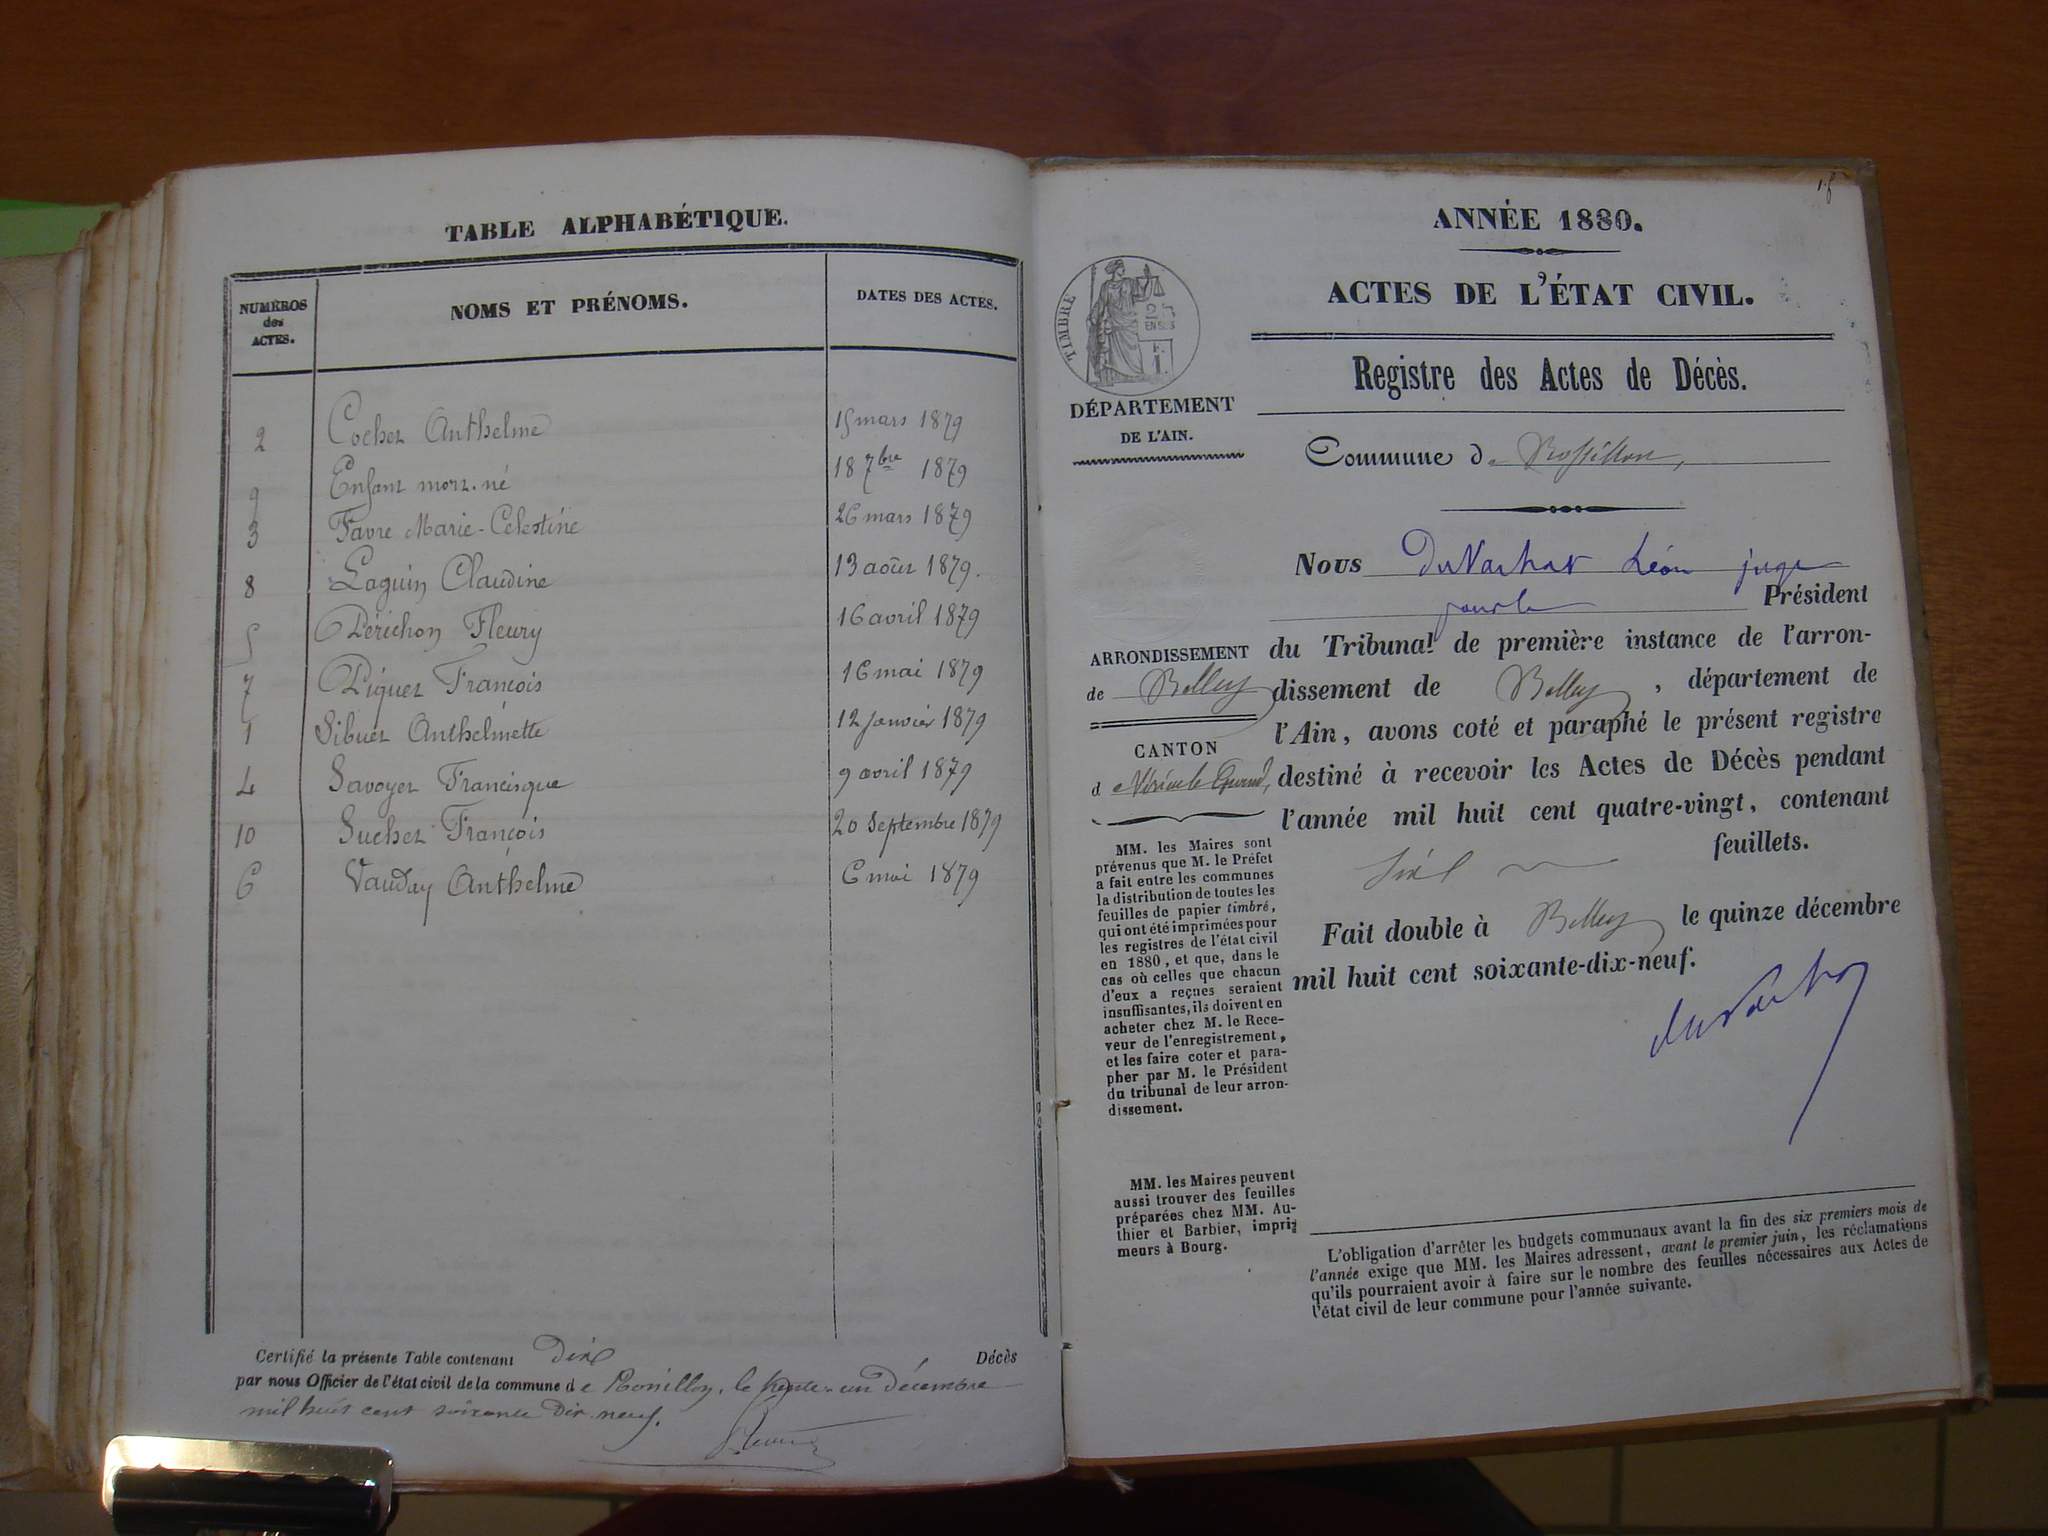 TABLE ALPHABÉTIQUE.
NUMÉROS des ACTES. NOMS ET PRÉNOMS. DATES DES ACTES.
2 Cochet Anthelme 15 mars 1879
9 Enfant mort-né 18 7bre 1879
3 Favre Marie-Celestine 26 mars 1879
8 Laguin Claudine 13 août 1879.
5 Périchon Fleury 16 avril 1879
7 Piquet François 16 mai 1879
1 Sibuet Anthelmette 12 janvier 1879
4 Savoyet Francisque 9 avril 1879
10 Suchet François 20 Septembre 1879
6 Vauday Anthelme 6 mai 1879
Certifié la présente Table contenant Dix Décès
par nous Officier de l'état civil de la commune de Rossillon, le trente-un décembre
mil huit cent soixante Dix-neuf.
ANNÉE 1880.
ACTES DE L'ÉTAT CIVIL.
Registre des Actes de Décès.
TIMBRE
DÉPARTEMENT
DE L'AIN.
Commune de Rossillon,
Nous Léon juge
pour le Président
du Tribunal de première instance de l'arron-
dissement de Belley, département de
l'Ain, avons coté et paraphé le présent registre
destiné à recevoir les Actes de Décès pendant
l'année mil huit cent quatre-vingt, contenant
feuillets.
Fait double à Belley le quinze décembre
mil huit cent soixante-dix-neuf.
ARRONDISSEMENT
de Belley
CANTON
de Virieu le Grand,
MM. les Maires sont
prévenus que M. le Préfet
a fait entre les communes
la distribution de toutes les
feuilles de papier timbré,
qui ont été imprimées pour
les registres de l'état civil
en 1880, et que, dans le
cas où celles que chacun
d'eux a reçues seraient
insuffisantes, ils doivent en
acheter chez M. le Rece-
veur de l'enregistrement,
et les faire coter et para-
pher par M. le Président
du tribunal de leur arron-
dissement.
MM. les Maires peuvent
aussi trouver des feuilles
préparées chez MM. Au-
thier et Barbier, impri-
meurs à Bourg.
L'obligation d'arrêter les budgets communaux avant la fin des six premiers mois de
l'année exige que MM. les Maires adressent, avant le premier juin, les réclamations
qu'ils pourraient avoir à faire sur le nombre des feuilles nécessaires aux Actes de
l'état civil de leur commune pour l'année suivante.